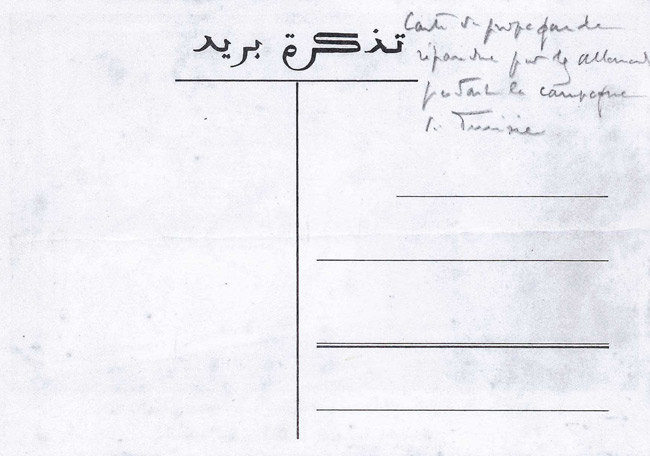 تذكرة بريد
Carte de propagande
répandue par les allemands
pendant la campagne
de Tunisie